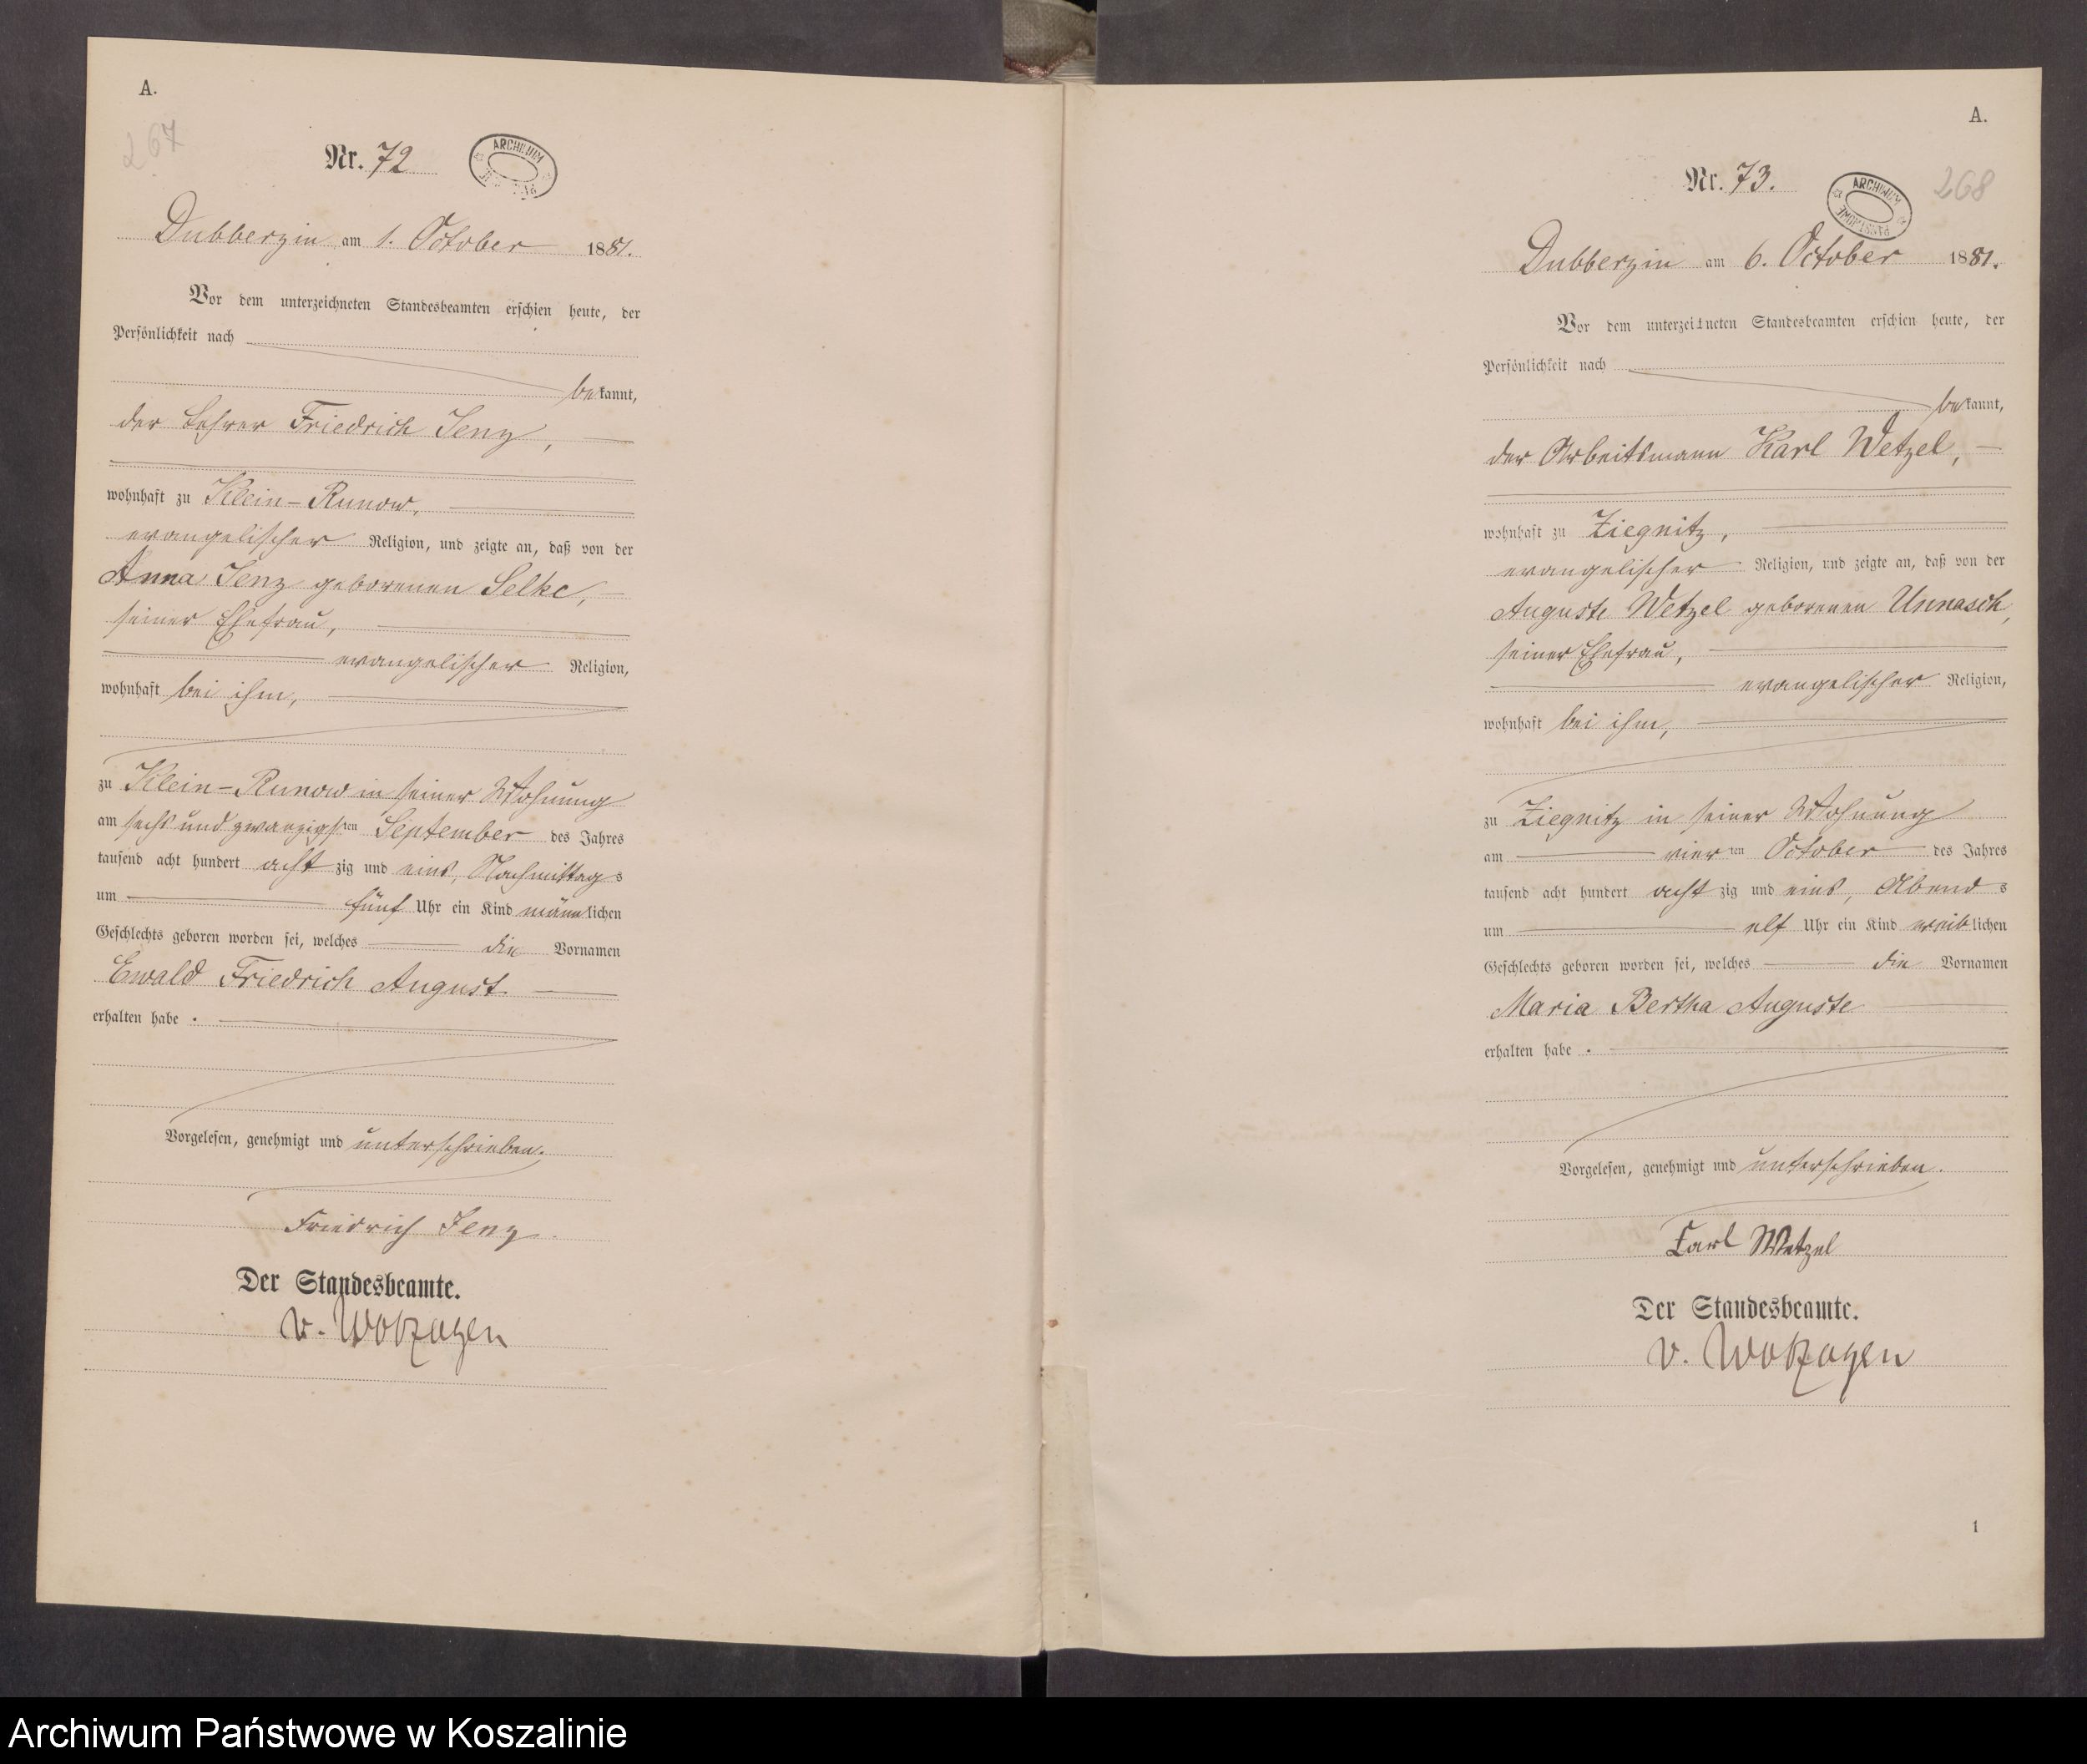 A.
267
Nr. 72
ARCHIWUM
Dubberzin am 1. October 1881.
Vor dem unterzeichneten Standesbeamten erschien heute, der
Persönlichkeit nach
bekannt,
der Lehrer Friedrich Jenz,
wohnhaft zu Klein-Runow,
evangelischer Religion, und zeigte an, daß von der
Anna Jenz geborenen Selke,
seiner Ehefrau,
evangelischer Religion,
wohnhaft bei ihm,
zu Klein-Runow in seiner Wohnung
am sechs und zwanzigsten September des Jahres
tausend acht hundert achtzig und eins, Nachmittags
um fünf Uhr ein Kind männlichen
Geschlechts geboren worden sei, welches die Vornamen
Ewald Friedrich August
erhalten habe.
Vorgelesen, genehmigt und unterschrieben.
Friedrich Jenz.
Der Standesbeamte.
v.
A.
268
Nr. 73.
ARCHIWUM PAŃSTWOWE
Dubberzin am 6. October 1881.
Vor dem unterzeichneten Standesbeamten erschien heute, der
Persönlichkeit nach
bekannt,
der Arbeitsmann Karl Wetzel,
wohnhaft zu Ziegnitz,
evangelischer Religion, und zeigte an, daß von der
Auguste Wetzel geborenen Unnasch,
seiner Ehefrau,
evangelischer Religion,
wohnhaft bei ihm,
zu Ziegnitz in seiner Wohnung
am vierten October des Jahres
tausend acht hundert achtzig und eins, Abends
um elf Uhr ein Kind weiblichen
Geschlechts geboren worden sei, welches die Vornamen
Maria Bertha Auguste
erhalten habe.
Vorgelesen, genehmigt und unterschrieben.
Carl Wetzel
Der Standesbeamte.
v.
1
Archiwum Państwowe w Koszalinie